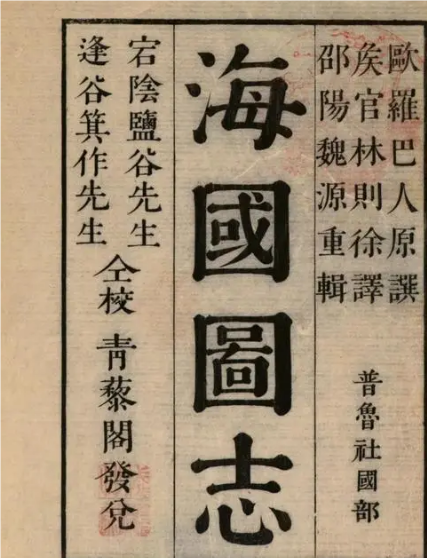 歐羅巴人原譔
矦官林則徐譯
邵陽魏源重輯
普魯社國部
海國圖志
宕陰鹽谷先生
逢谷箕作先生
仝校
青藜閣發兌